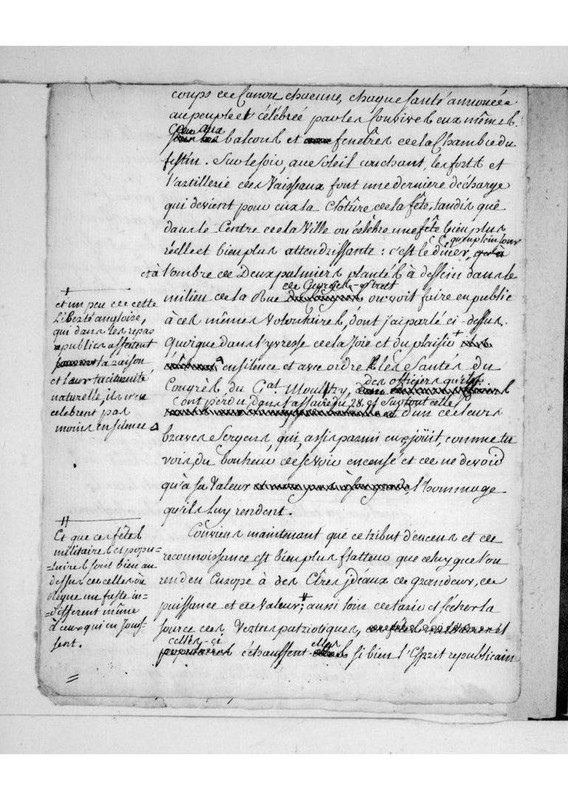 coups de Canon chacune, chaque santé annoncée
au peuple et célébrée par les Convives eux mêmes
aux
balcons et fenêtres de la Chambre du
festin. Sur le soir, au Soleil couchant, les forts et
l'artillerie des Vaisseaux font une derniere décharge
qui devient pour eux la Clôture de la fête, tandis que
dans le Centre de la Ville on célèbre une fête bien plus
réelle et bien plus attendrissante : c'est le diner, qu'en plein jour
et à l'ombre de Deux palmiers plantés à dessein dans le
de George's-street
milieu de la Rue on voit faire en public
à ces mêmes Volontaires, dont j'ai parlé ci-dessus.
Quoique dans l'yvresse de la Joie et du plaisir
en silence et avec ordre les Santés du
Congrès, du Gal. Moultry, des officiers qu'ils
ont perdu dans l'affaire du 28. et surtout celle
d'un de leurs
braves Sergens qui, assis parmi eux, joüit, comme tu
vois, du bonheur de se voir encensé et de ne devoir
qu'à sa Valeur l'hommage
qu'ils luy rendent.
†
et un peu de cette
Liberté angloise,
qui dans les repas
publics affectent
la raison
et leur taciturnité
naturelle, ils n'en
celebrent pas
moins en silence
Conviens maintenant que ce tribut d'encens et de
reconnoissance est bien plus flatteur que celuy que l'on
rend en Europe à des Êtres idéaux de grandeur, de
puissance et de Valeur; aussi loin de tarir et sécher la
source des Vertus patriotiques,
celles-ci
échauffent si bien l'Esprit republicain
Et que ces fêtes
militaires et popu-
laires sont bien au
dessus de celles où
regne un faste in-
différent même
à ceux qui en jouis-
sent.